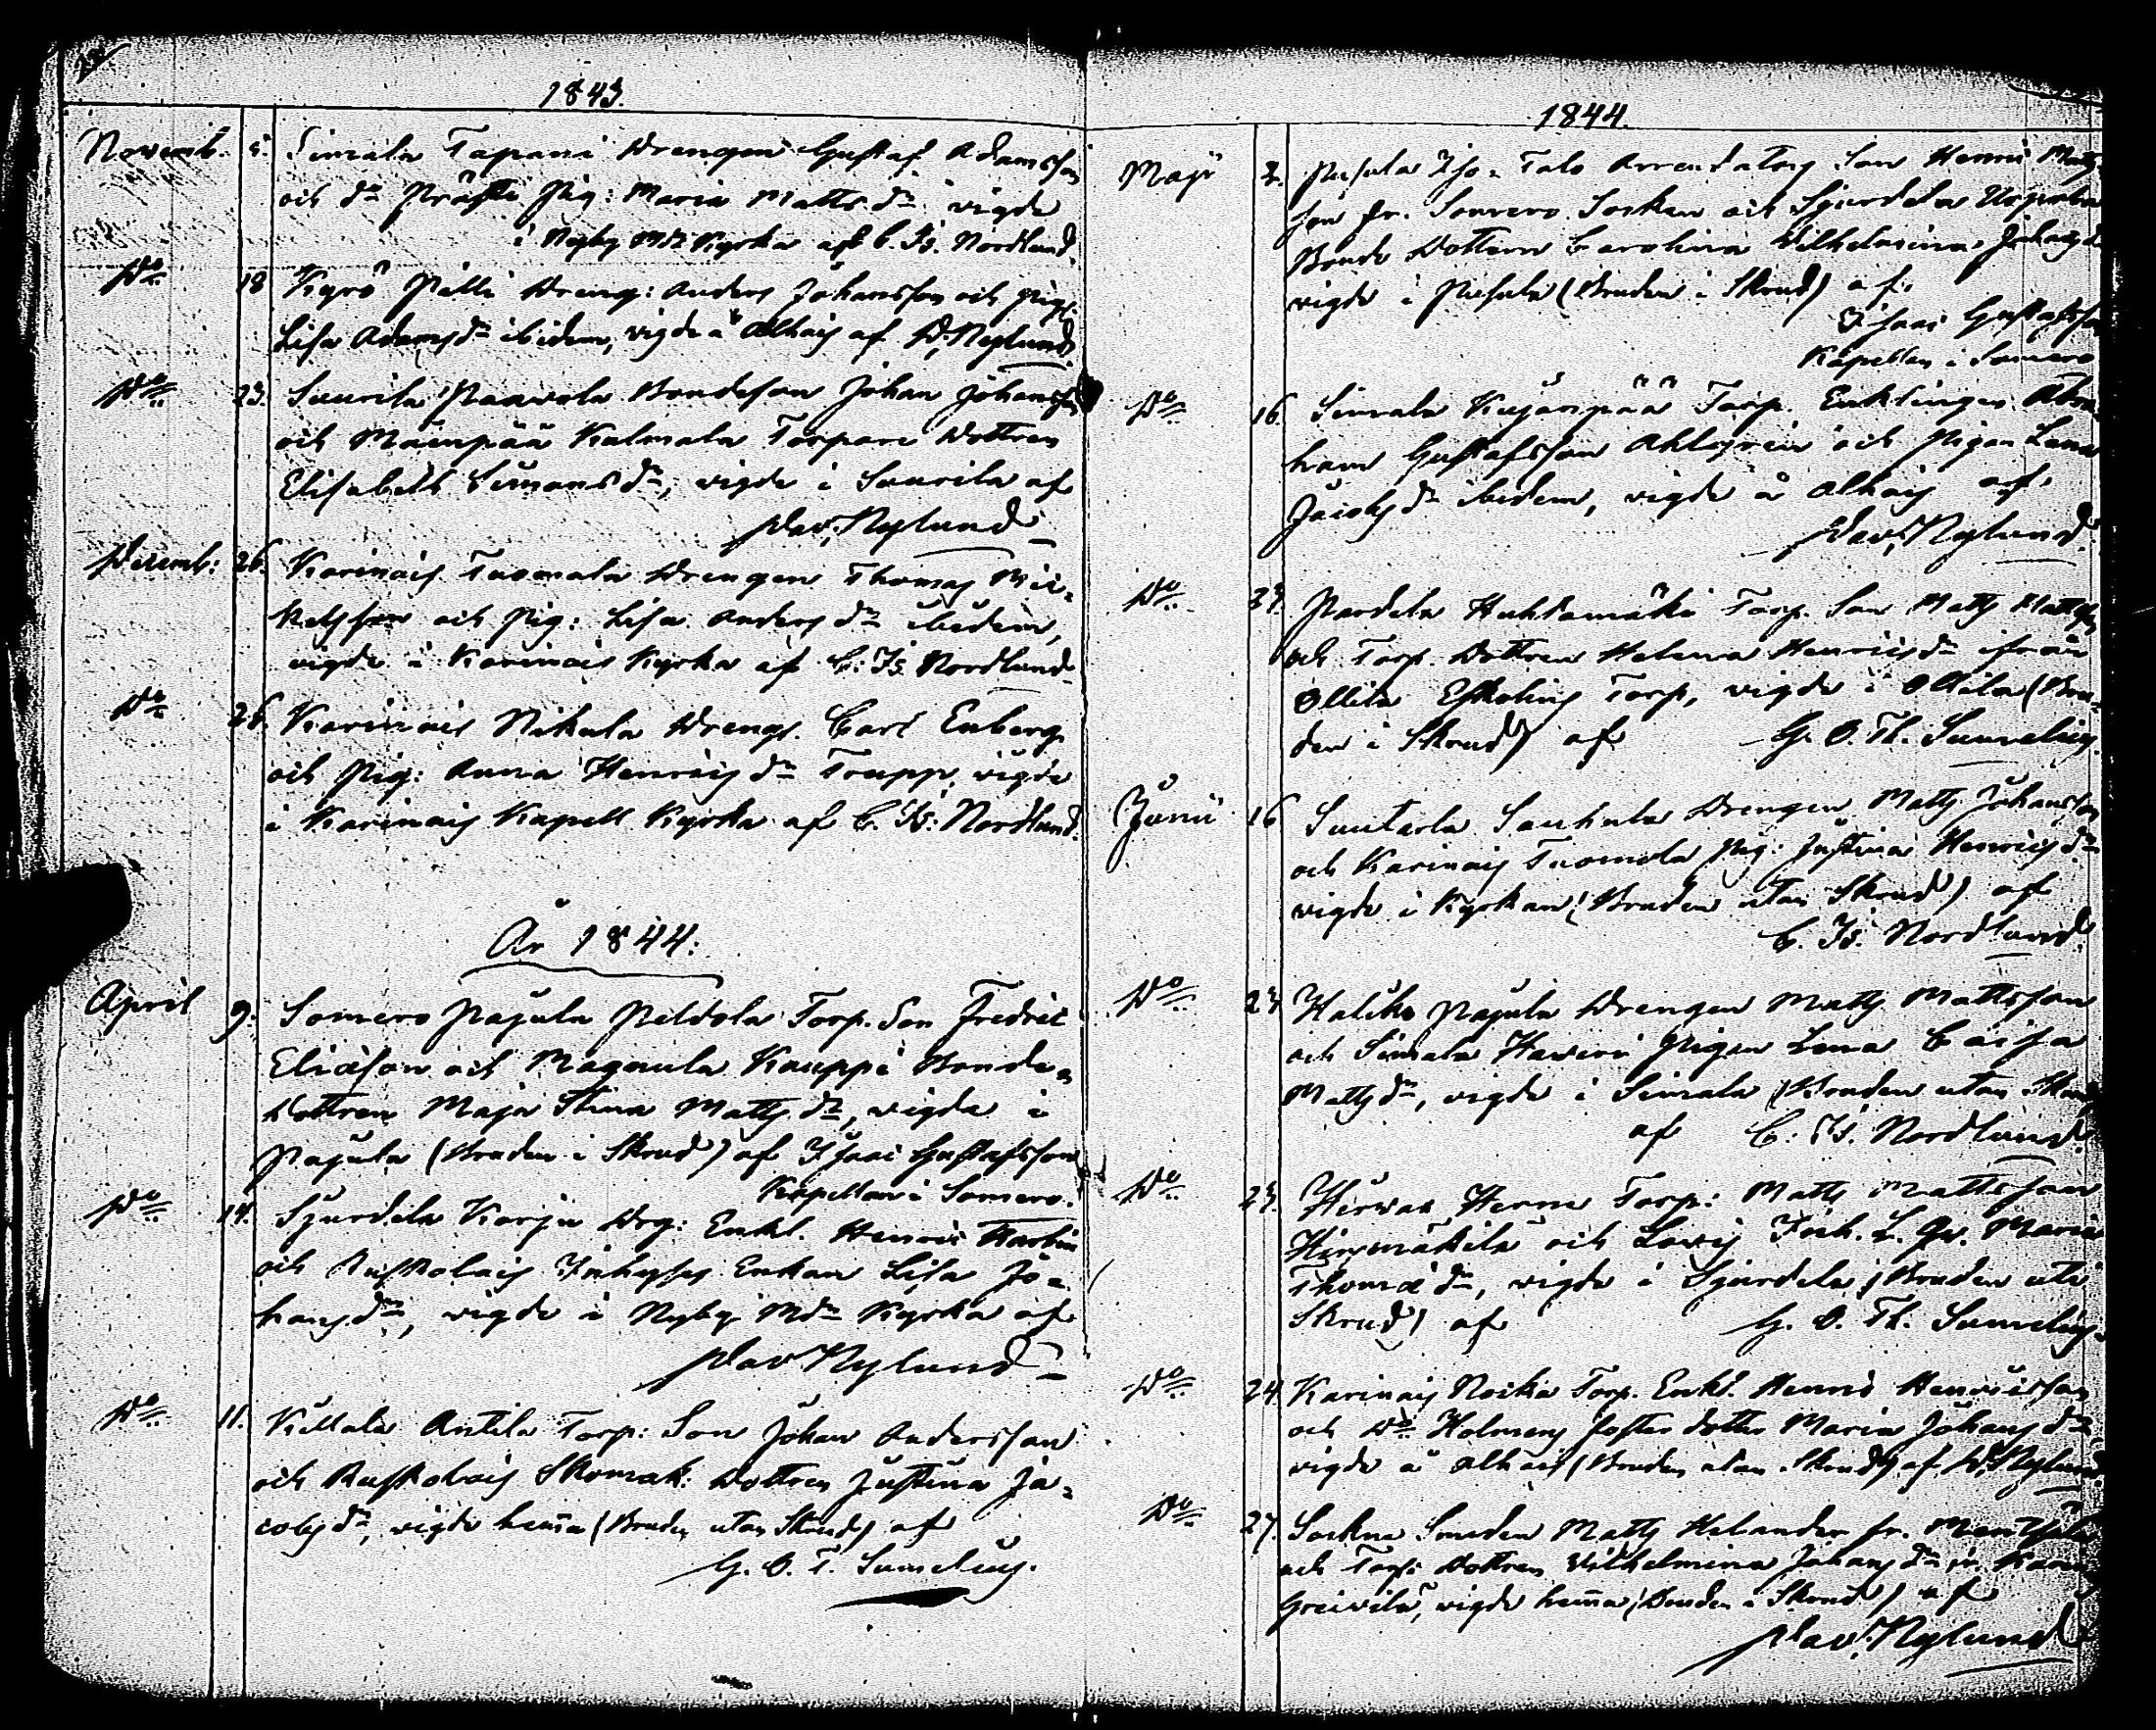 1843.
Novemb. 5. Simala Tapani Drengen Gustaf Adamsson
och do Präfti Pig: Maria Matts dr vigde
i Nyby Mdr Kyrka af C. Is. Nordlund.
Do 18 Kyrö Pilli Dreng: Anders Johansson och Pig:
Lisa Adams dr ibidem, vigde å Alhais af D. Nylund
Do 23. Suurila Paavola Bondeson Johan Johansson
och Mäenpää Kulmala Torpare Dottren
Elisabeth Simons dr, vigde i Suurila af
Dav. Nylund
Decemb: 26. Karinais Tuomala Drengen Thomas Mic-
kelsson och Pig: Lisa Anders dr ibidem,
vigde i Karinais Kyrka af C. Is. Nordlund
Do 26. Karinais Nikula Drengs. Carl Enberg
och Pig: Anna Henrics dr Trapp, vigde
i Karinais Kapell Kyrka af C. Is. Nordlund.
År 1844:
April 9. Somero Pajula Peldola Torp. Son Fredric
Eliasson och Magnula Kauppi Bonde-
Dottren Maja Stina Matts dr, vigde i
Pajula (Bruden i Skrud) af Isaac Gustafsson
Kapellan i Somero.
Do 14. Sjurdela Korju Drg: Enkl. Henric
och Ruskolais Enkan Lisa Jo-
hans dr, vigde i Nyby Mdr Kyrka af
Dav. Nylund
Do 11. Killala Antila Torp: Son Johan Andersson
och Ruskolais Skomak: Dottren Justina Ja-
cobs dr, vigde hem̄a (Bruden utan Skrud) af
G. O. T. Sumelius.
1844.
Maji 2. Iso-Talo Arrendators Son Henric Matts
son fr. Somero Socken och Sjurdela Uspala
Bonde Dottern Carolina Vilhelmina Johans d
vigde i (Bruden i Skrud) af
Isaac Gustafsson
Kapellan i Somero
Do 16. Simala Kujanpää Torp. Enklingen Abra
ham Gustafsson Ahlgrein och Pigan Lena
Jacobs dr ibidem, vigde å Alhais af
Dav. Nylund
Do 27. Pardela Huhdamäki Torp. Son Matts Mattsson
och Torp. Dottren Helena Henrics dr ifrån
Ollila Eskolins Torp, vigde i Ollila (Bru-
den i Skrud) af G. O. Th. Sumelius.
Junii 16 Suutarla Sauhula Drengen Matts Johansson
och Karinais Tuomola Pig: Justina Henrics dr
vigde i Kyrkan (Bruden utan Skrud) af
C. Is. Nordlund
Do 23 Haliko Pajula Drengen Matts Mattsson
och Simala Haveri Pigan Lena Caisa
Matts dr, vigde i Simala (Bruden utan Skrud
af C. Is. Nordlund.
Do 23. Hirvas Herne Torp: Matts Mattsson
Hirsmäkilä och Lovis Inh. Maria
Thomæ dr, vigde i Sjurdela (Bruden uti
Skrud) af G. O. Th. Sumelius.
Do 24. Karinais Noika Torp. Enkl. Henric Henricsson
och do Holmens foster dotter Maria Johans dr
vigde å Alhais (Bruden utan Skrud) af D. Nylund.
Do 27. Sockne Smeden Matts Helander fr.
och Torp: Dottren Vilhelmina Johans dr
Greivilä, vigde hem̄a (Bruden i Skrud) af
Dav. Nylund